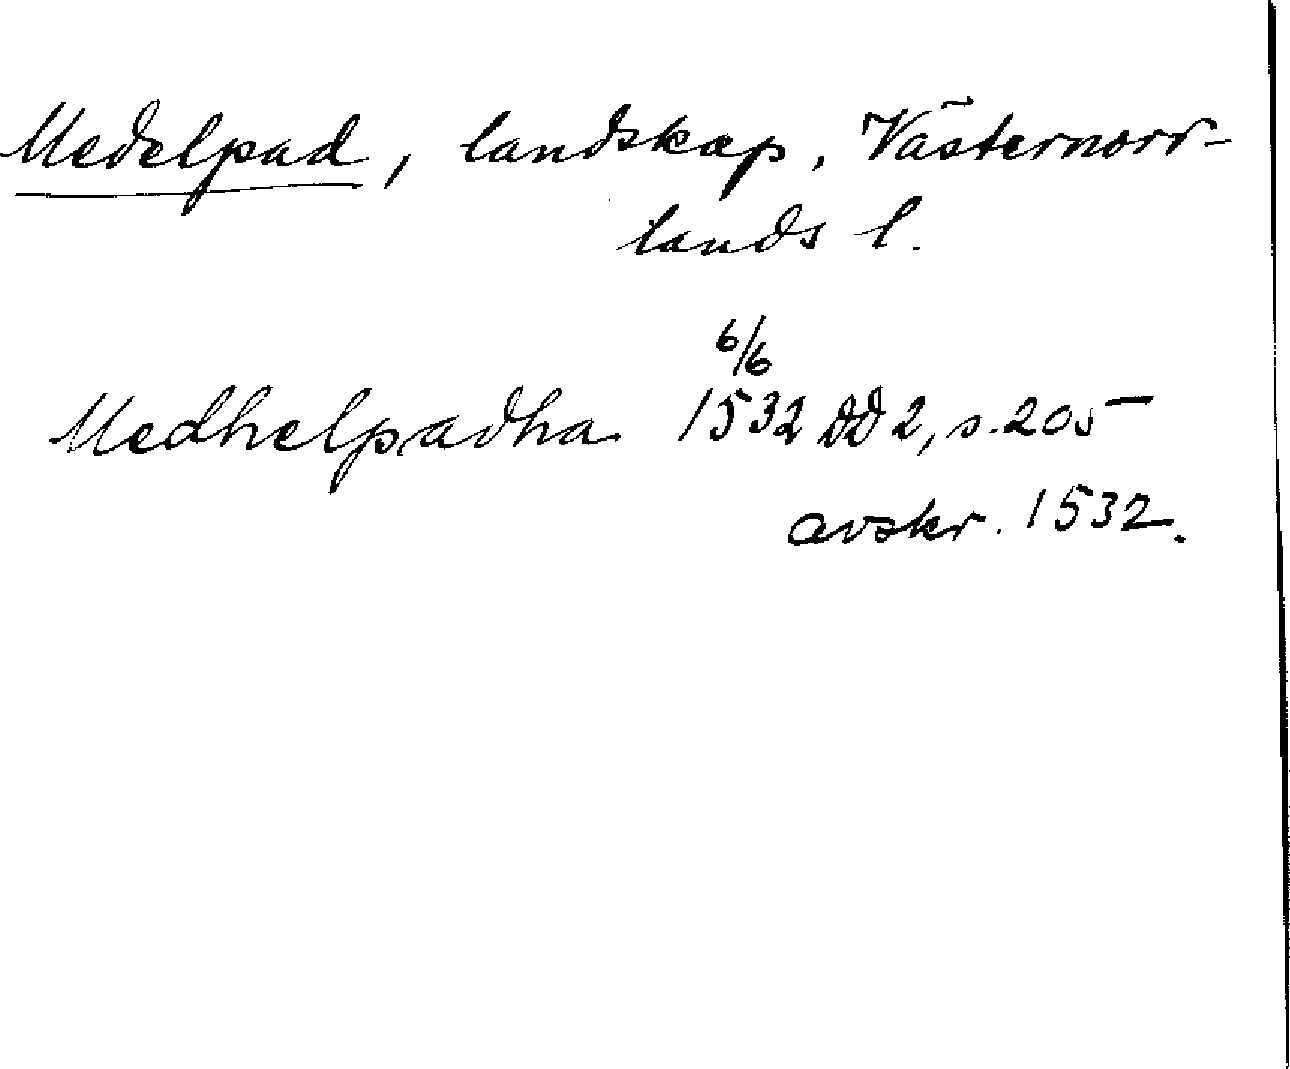 Medelpad, landskap, Västernorr-
lands l.
6/6
Medhelpadha 1532 DD 2, s. 205
avskr. 1532.